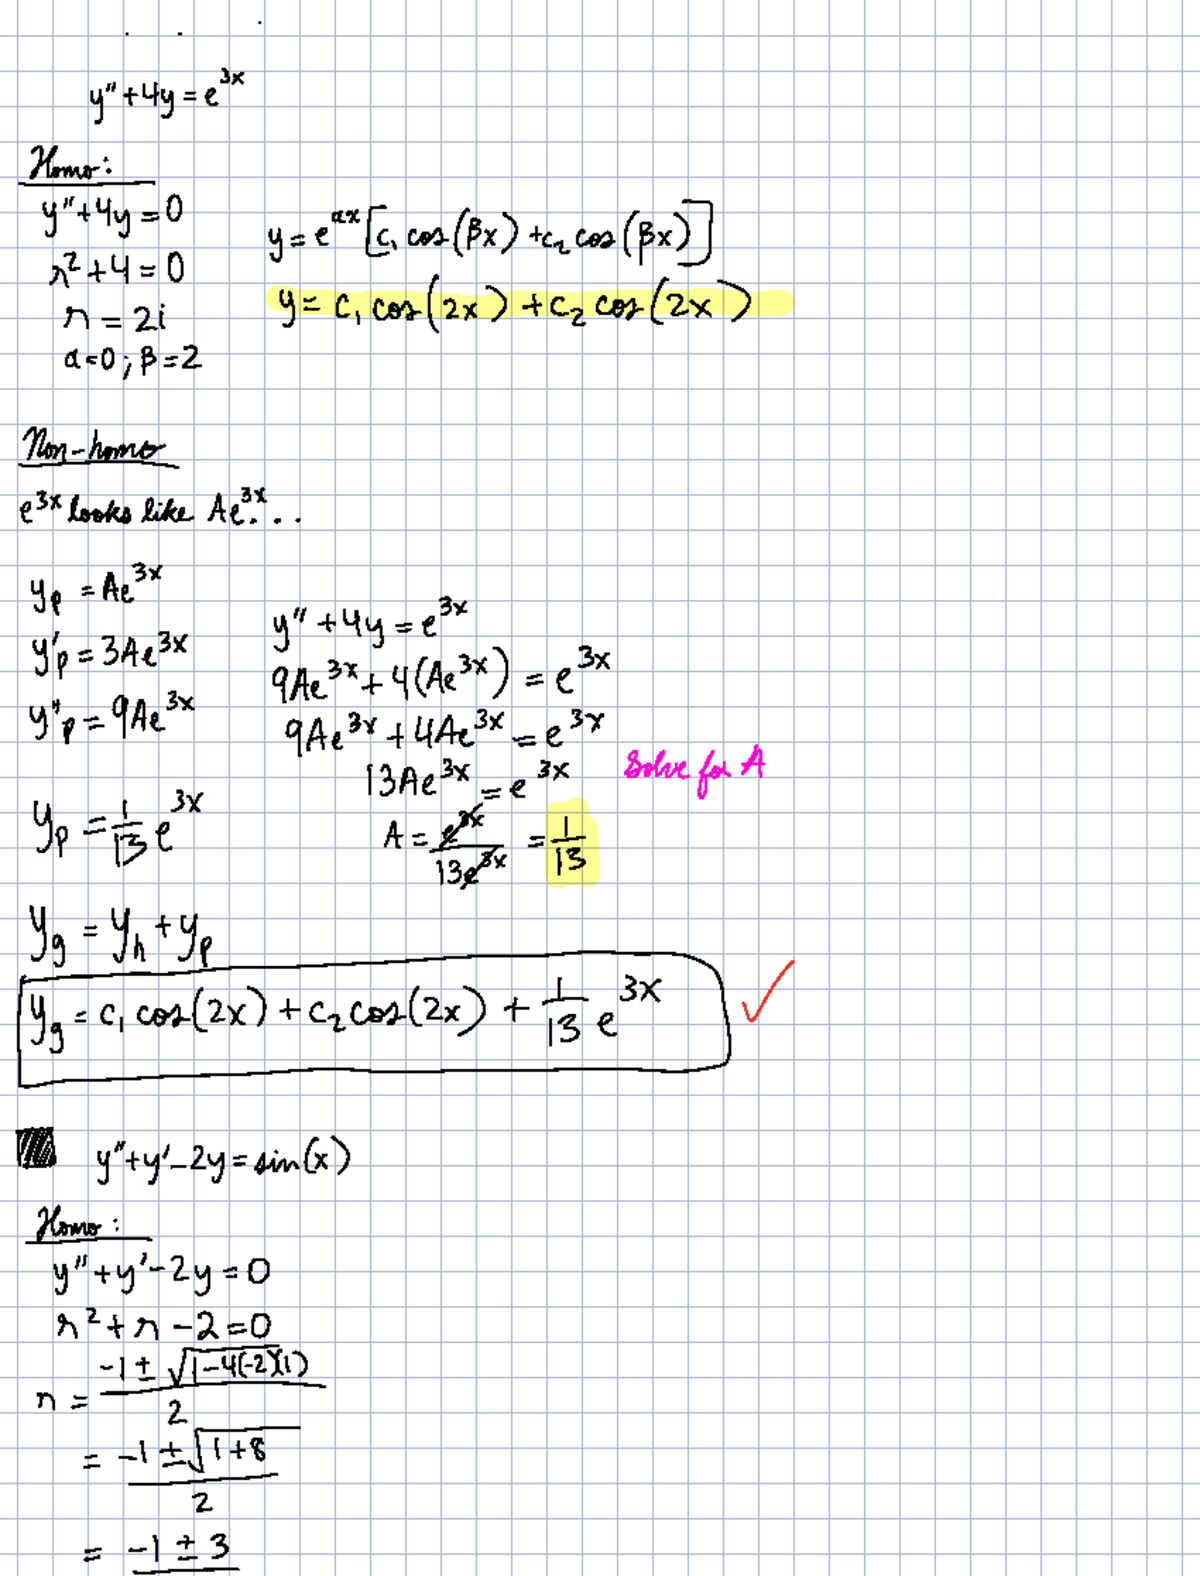 y" + 4y = e^{3x}
Homo:
y" + 4y = 0
r² + 4 = 0
r = 2i
α=0; β=2
y = e^{αx} [c₁ cos(βx) + c₂ cos(βx)]
y = c₁ cos(2x) + c₂ cos(2x)
Non-homo
e^{3x} looks like Ae^{3x}...
y_p = Ae^{3x}
y'_p = 3Ae^{3x}
y"_p = 9Ae^{3x}
y" + 4y = e^{3x}
9Ae^{3x} + 4(Ae^{3x}) = e^{3x}
9Ae^{3x} + 4Ae^{3x} = e^{3x}
13Ae^{3x} = e^{3x} Solve for A
A = e^{3x}/13e^{3x} = 1/13
y_p = 1/13 e^{3x}
y_g = y_h + y_p
y_g = c₁ cos(2x) + c₂ cos(2x) + 1/13 e^{3x} ✓
y" + y' - 2y = sin(x)
Homo:
y" + y' - 2y = 0
r² + r - 2 = 0
r = (-1 ± √(1-4(-2)(1)))/2
= (-1 ± √(1+8))/2
= -1 ± 3